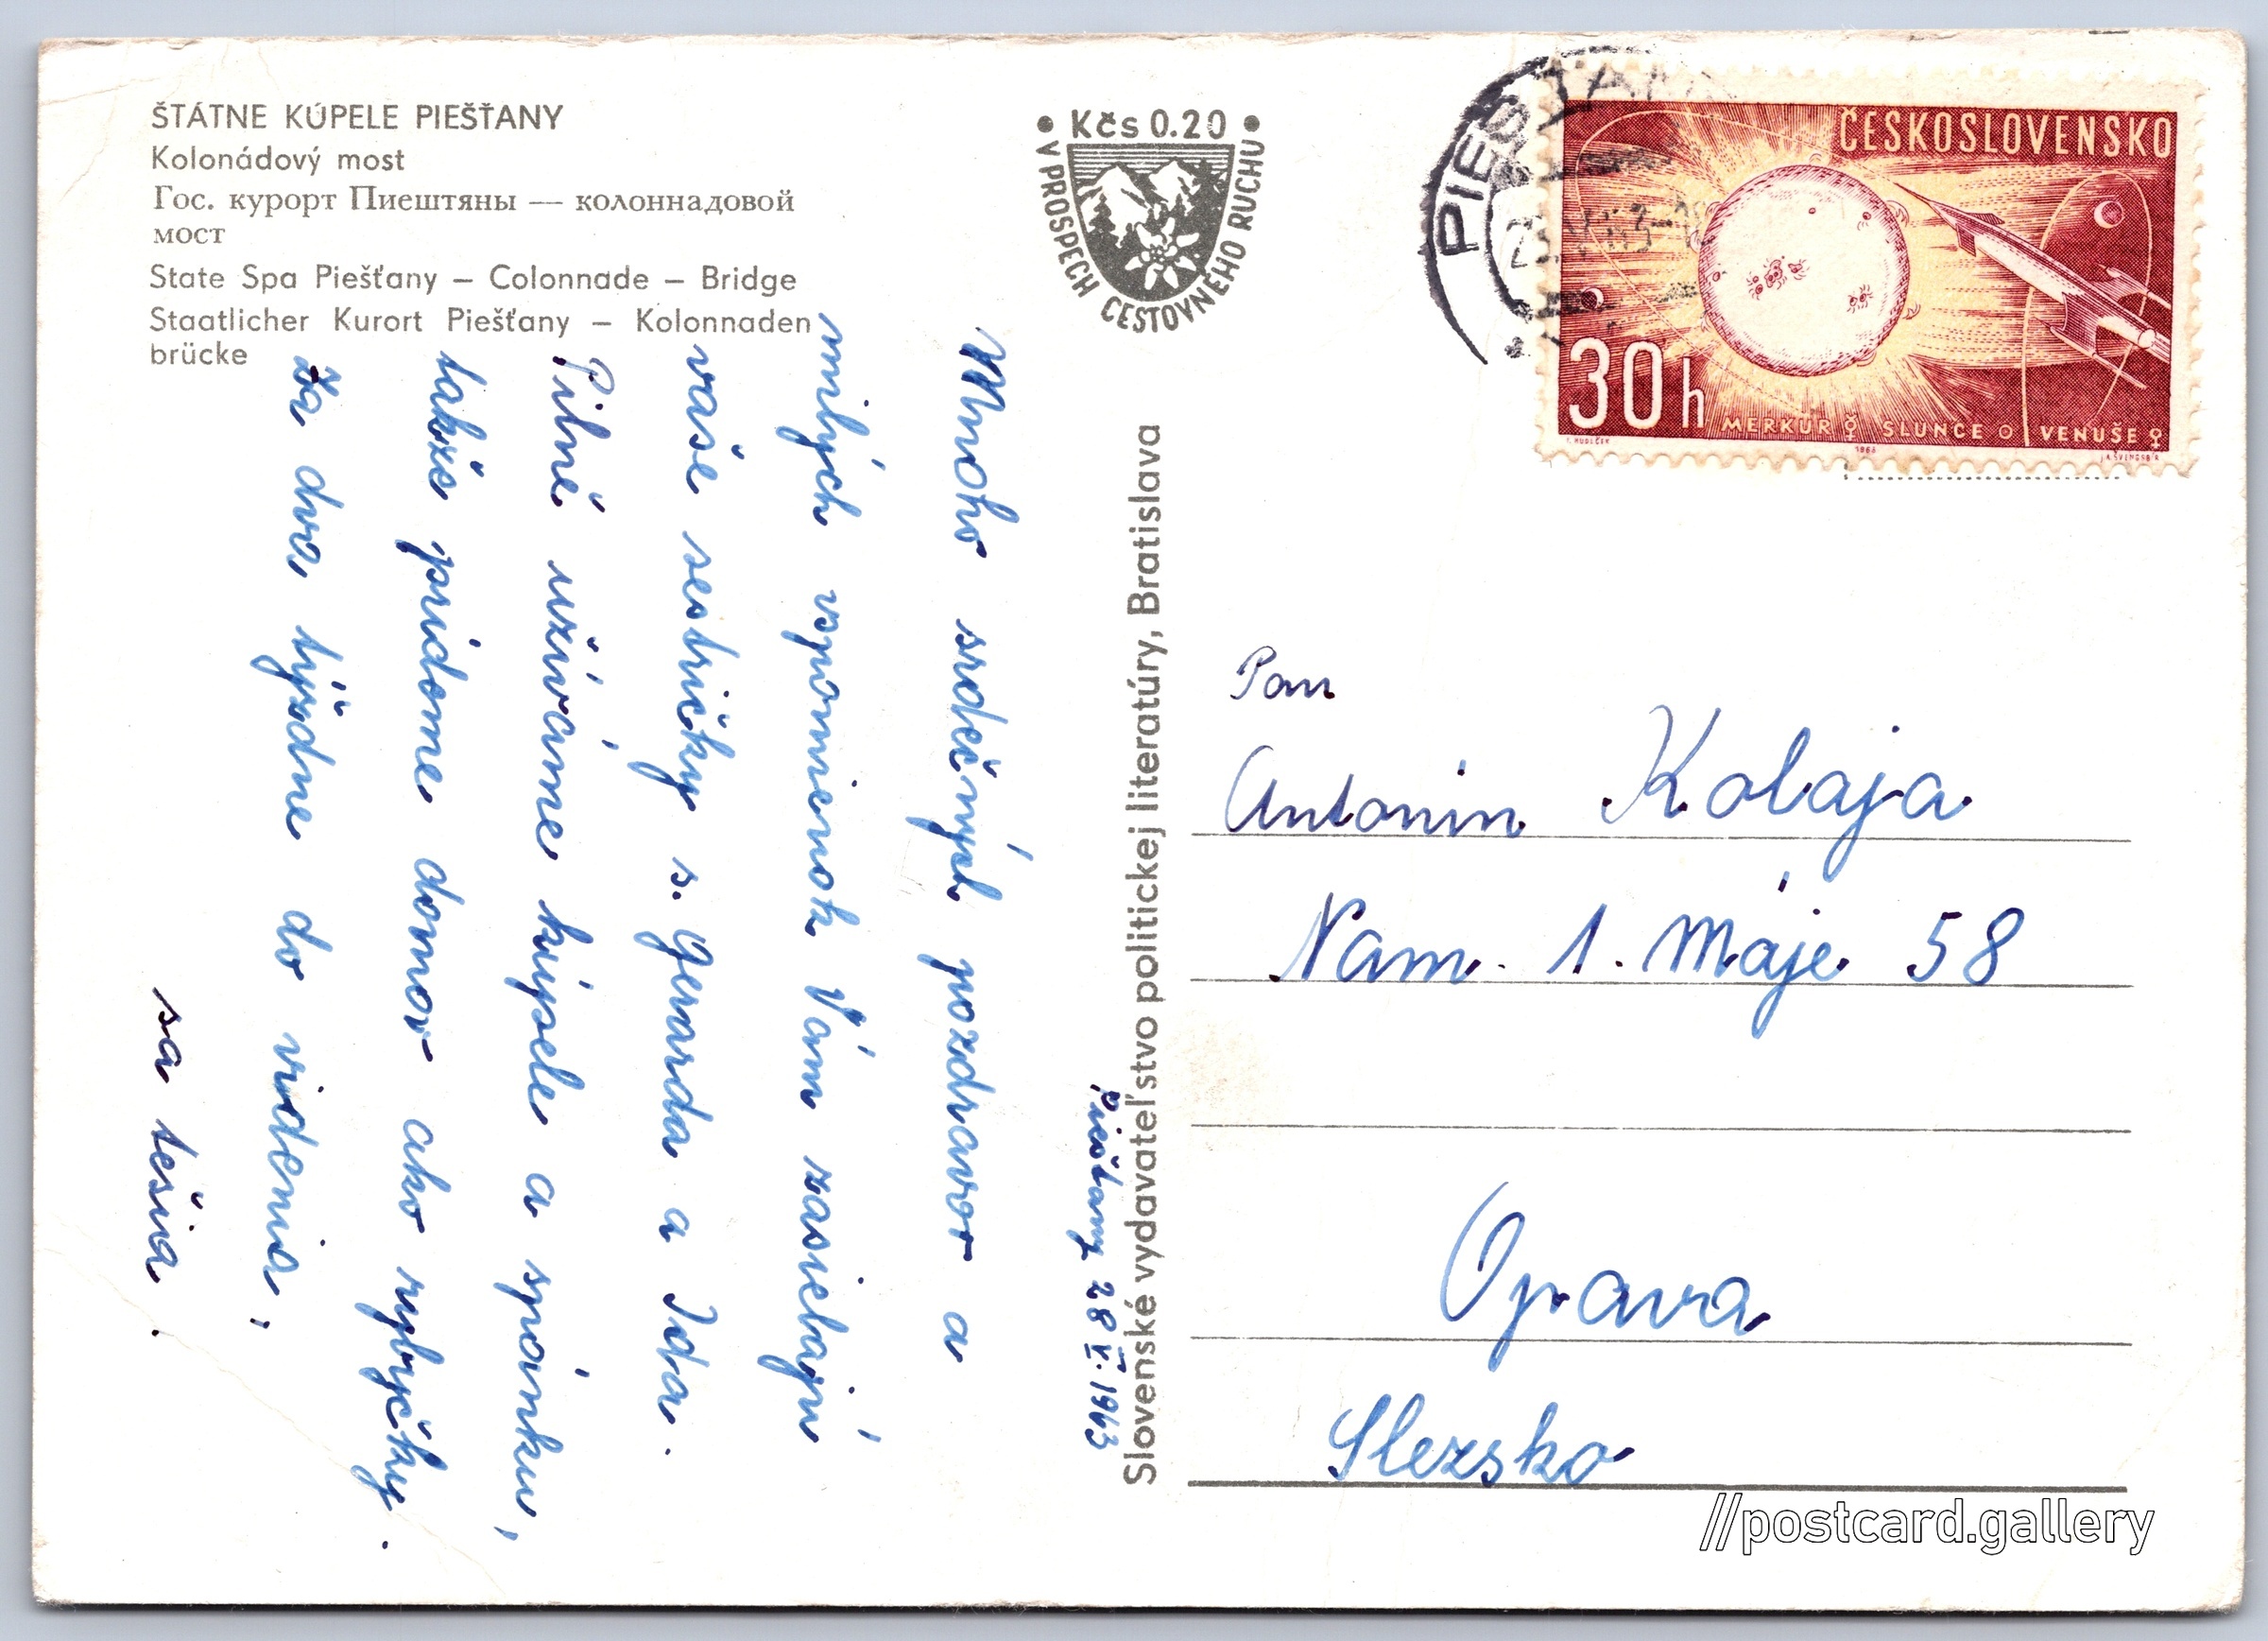 ŠTÁTNE KÚPELE PIEŠŤANY
Kolonádový most
Гос. курорт Пиештяны — колоннадовой
мост
State Spa Piešťany – Colonnade – Bridge
Staatlicher Kurort Piešťany – Kolonnaden
brücke
• Kčs 0.20 •
V PROSPECH CESTOVNÉHO RUCHU
PIEŠŤANY
ČESKOSLOVENSKO
30h
MERKUR ☿ SLUNCE ☉ VENUŠE ♀
1963
Piešťany 28 V. 1963
Mnoho srdečných pozdravov a
milých vzpomienok Vám zasielajú
vaše sestričky s. Gerarda a Ida.
Pilně užívame kúpele a spánku,
takže prídeme domov ako rybyčky.
Za dva týždne do videnia,
sa tešia.
Slovenské vydavateľstvo politickej literatúry, Bratislava
Pan
Antonin Kolaja
Nam. 1. Máje 58
Opava
Slezsko
//postcard.gallery